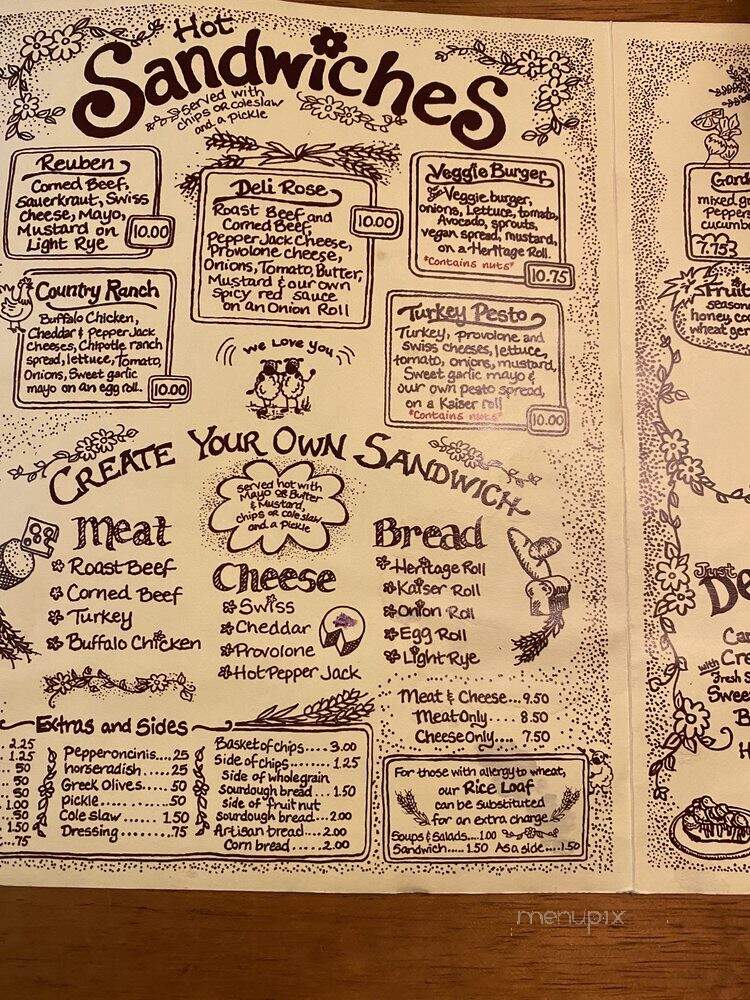 Hot
Sandwiches
served with
chips or coleslaw
and a pickle
Reuben
Corned Beef,
Sauerkraut, Swiss
Cheese, Mayo,
Mustard on
Light Rye
10.00
Deli Rose
Roast Beef and
Corned Beef,
Pepper Jack Cheese,
Provolone cheese,
Onions, Tomato, Butter,
Mustard & our own
Spicy red sauce
on an Onion Roll
10.00
Veggie Burger
Veggie burger,
onions, Lettuce, tomato,
Avocado, sprouts,
vegan spread, mustard,
on a Heritage Roll.
*Contains nuts*
10.75
Country Ranch
Buffalo Chicken,
Cheddar & Pepper Jack
Cheeses, Chipotle ranch
spread, lettuce, Tomato,
Onions, Sweet garlic
mayo on an egg roll.
10.00
We Love You
Turkey Pesto
Turkey, provolone and
Swiss cheeses, lettuce,
tomato, onions, mustard,
Sweet garlic mayo &
our own pesto spread,
on a Kaiser roll
*Contains nuts*
10.00
Create Your Own Sandwich
served hot with
Mayo or Butter
& Mustard,
chips or cole slaw
and a pickle
Meat
Roast Beef
Corned Beef
Turkey
Buffalo Chicken
Cheese
Swiss
Cheddar
Provolone
Hot Pepper Jack
Bread
Heritage Roll
Kaiser Roll
Onion Roll
Egg Roll
Light Rye
Meat & Cheese...9.50
Meat Only....8.50
Cheese Only....7.50
Extras and Sides
2.25
1.25
50
50
50
1.00
50
1.50
.75
Pepperoncinis....25
horseradish.....25
Greek Olives.....50
pickle.........50
Cole slaw.......1.50
Dressing........75
Basket of chips....3.00
Side of chips.......1.25
Side of wholegrain
sourdough bread...1.50
side of fruit nut
sourdough bread...2.00
Artisan bread....2.00
Corn bread.....2.00
For those with allergy to wheat,
our Rice Loaf
can be substituted
for an extra charge
Soups & Salads...1.00
Sandwich.....1.50 As a side....1.50
Gard
mixed gr
Pepper
cucumb
7.75
Fruit
season
honey, co
wheat ger
Just
Do
Ca
with Cre
fresh S
Swee
B
H
menupix